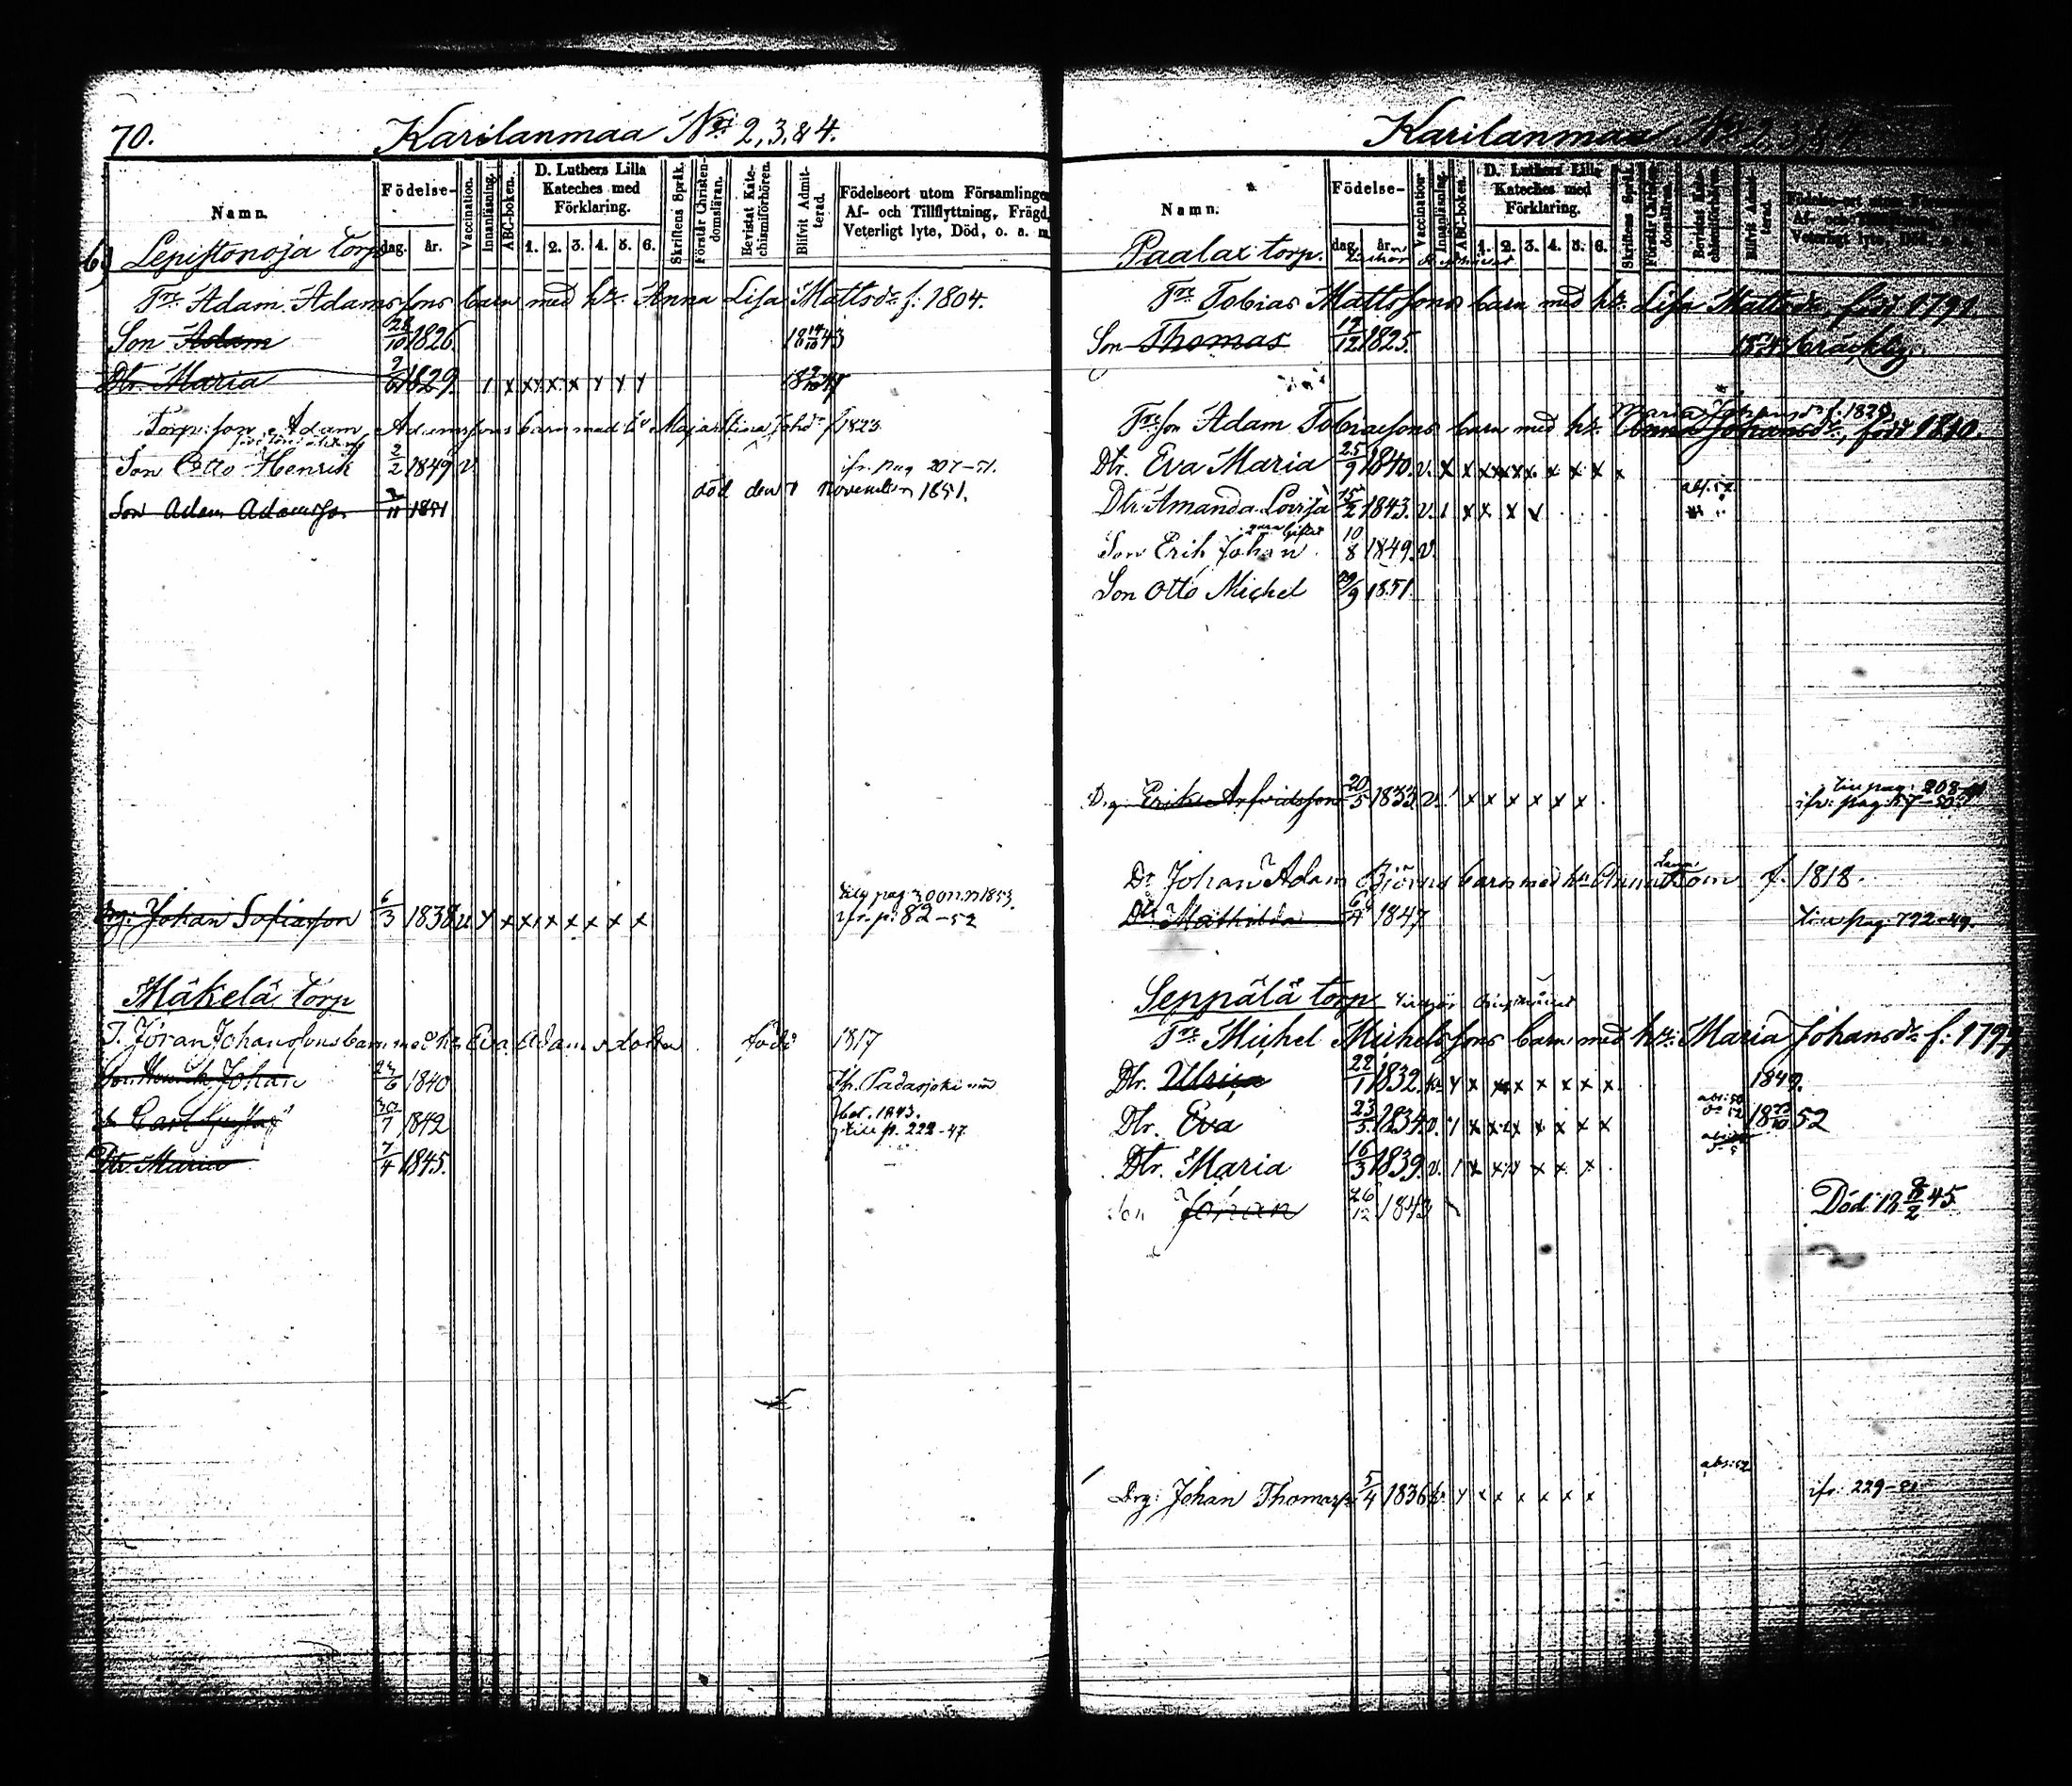 70. Karilanmaa No 2, 3, & 4.
Namn.
Födelse-
dag. år.
Vaccination.
Innanläsning.
ABC-boken.
D. Luthers Lilla Kateches med Förklaring.
1. 2. 3. 4. 5. 6.
Skriftens Språk.
Förstår Christendomsläran.
Bevistat Katechismiförhören.
Blifvit Admitterad.
Födelseort utom Församlingen
Af- och Tillflyttning, Frägd,
Veterligt lyte, Död, o. a. m.
6) Lepistonoja torp
Trp. Adam Adamssons barn med h. Anna Lisa Mattsdr f. 1804.
Son Adam 28/10 1826. 18 14/10 43
Dtr. Maria 1829. 1 x x x x x y y y
Torp: son Adam Adamssons barn med h. Maja Stina Johdr f 1823
Son Otto Henrik 2/2 1849 v. ifr. pag 207-51.
Son Adam Adamsson 2/11 1851 död den 1 November 1851.
till pag 300 1853.
Drg: Johan Sofiasson 6/3 1838 v. y x x x x x x x x ifr. p: 82-52
Mäkelä torp
T. Jöran Johanssons barn med h. Eva Adamsdotter född 1817
Son Henrik Johan 6 1840 fr. Padasjoki
Carl Gustaf 30/7 1842 bet. 1843.
till p. 222-47
Dtr. Maria 7/4 1845.
Karilanmaa No 2, 3, & 4.
Namn.
Födelse-
dag. år.
Vaccination
Innanläsning.
ABC-boken.
D. Luthers Lilla Kateches med Förklaring.
1. 2. 3. 4. 5. 6.
Skriftens Språk.
Förstår Christendomsläran.
Bevistat Katechismiförhören.
Blifvit Admitterad.
Födelse-ort utom
Veterligt lyte, Död
Paalax torp.
Trp. Tobias Mattssons barn med h. Lisa Mattsdr, född 1791.
Son Thomas 19/12 1825.
Maria Johansdr f. 1820.
Trp. son Adam Tobiassons barn med h. Anna Johansdr, född 1810.
Dtr. Eva Maria 25/9 1840. v. x x x x x x x x x x
Dtr Amanda Lovisa 15/2 1843. v. 1 x x x x abs. 52
Son Erik Johan 10/8 1849. v.
Son Otto Michel 29/9 1851.
till pag: 208
Drg: Erik Arfvidsson 20/5 1833 v. 1 x x x x x x ifr: pag: 57-50
Dr Johan Adam Björns barn med h. Anna f. 1818.
Dtr Mathilda 6/4 1847 till pag: 792-49.
Seppälä torp
Trp. Michel Michelssons barn med h. Maria Johansdr f. 1797
Dtr. Ulrica 22/1 1832. y x x x x x x x 1849.
Dtr. Eva 23/5 1834. v. 1 x x x x x x x abs: 50 52 18 10 52
Dtr. Maria 16/3 1839. v. 1 x x x x x x
Son Johan 26/12 1843 Död 18 8/2 45
Drg: Johan Thomasson 5/4 1836 y x x x x x x abs: 52 ifr: 229-51